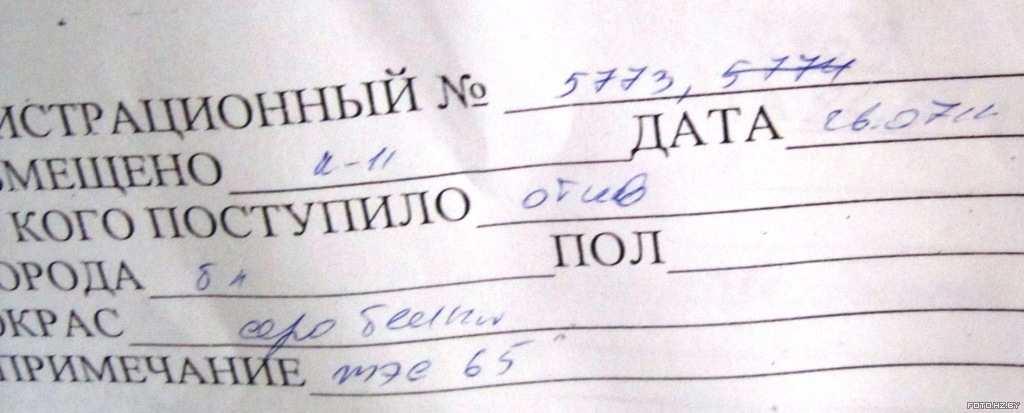 ИСТРАЦИОННЫЙ № 5773, 5774
ЗМЕЩЕНО к-11 ДАТА 26.07.11
КОГО ПОСТУПИЛО отлов
ОРОДА б п ПОЛ
ОКРАС серо белый
ПРИМЕЧАНИЕ тэс 65
FOTO.HZ.BY